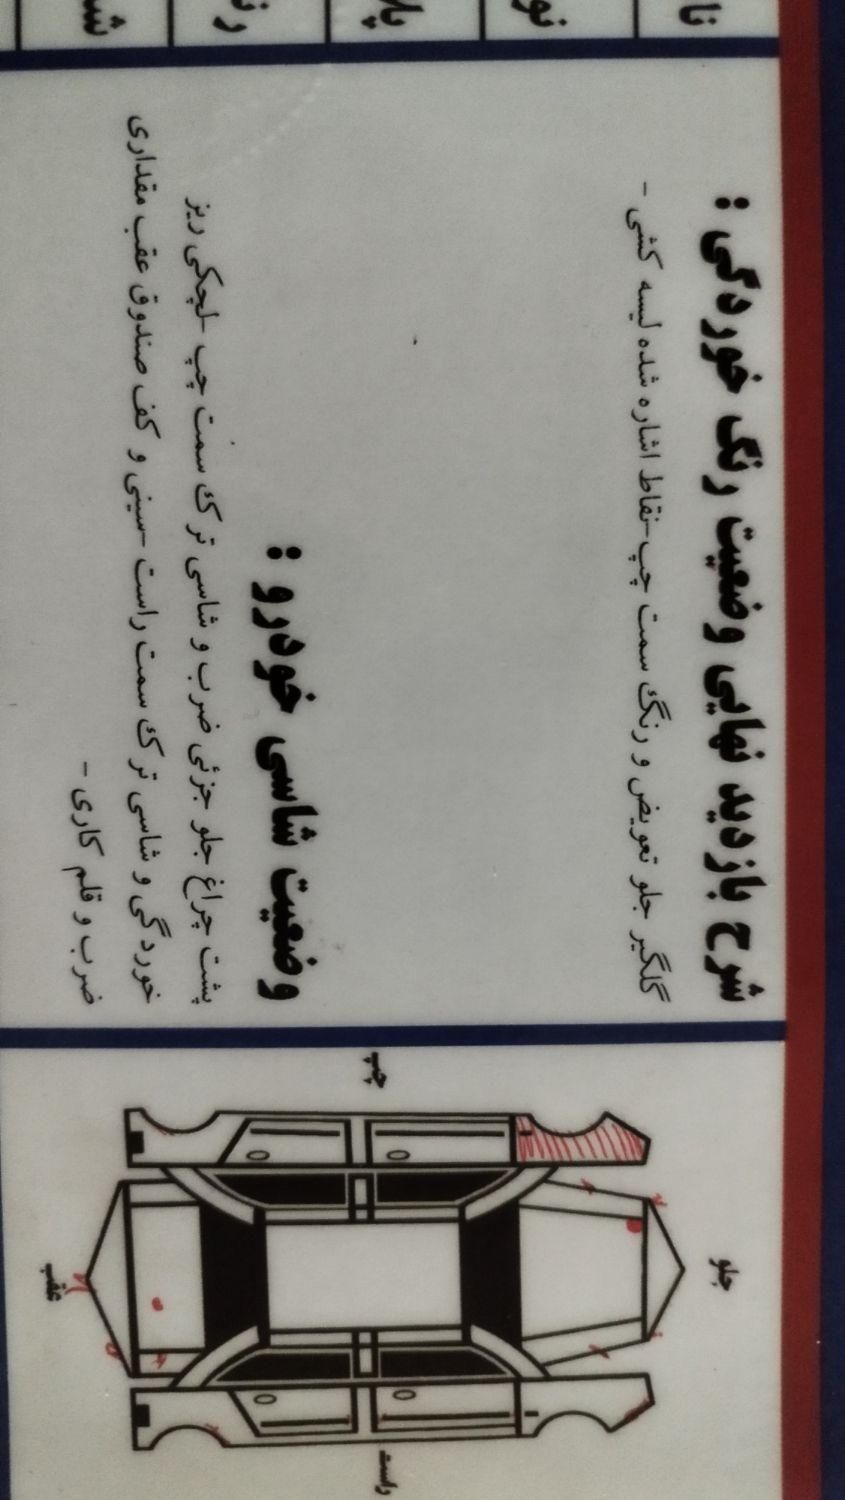 شرح بازدید نهایی وضعیت رنگ خوردگی :
گلگیر جلو تعویض و رنگ سمت چپ-نقاط اشاره شده لیسه کشی -
وضعیت شاسی خودرو :
پشت چراغ جلو جزئی ضرب و شاسی ترک سمت چپ -لچکی ریز
خوردگی و شاسی ترک سمت راست -سینی و کف صندوق عقب مقداری
ضرب و قلم کاری -
چپ
جلو
عقب
راست